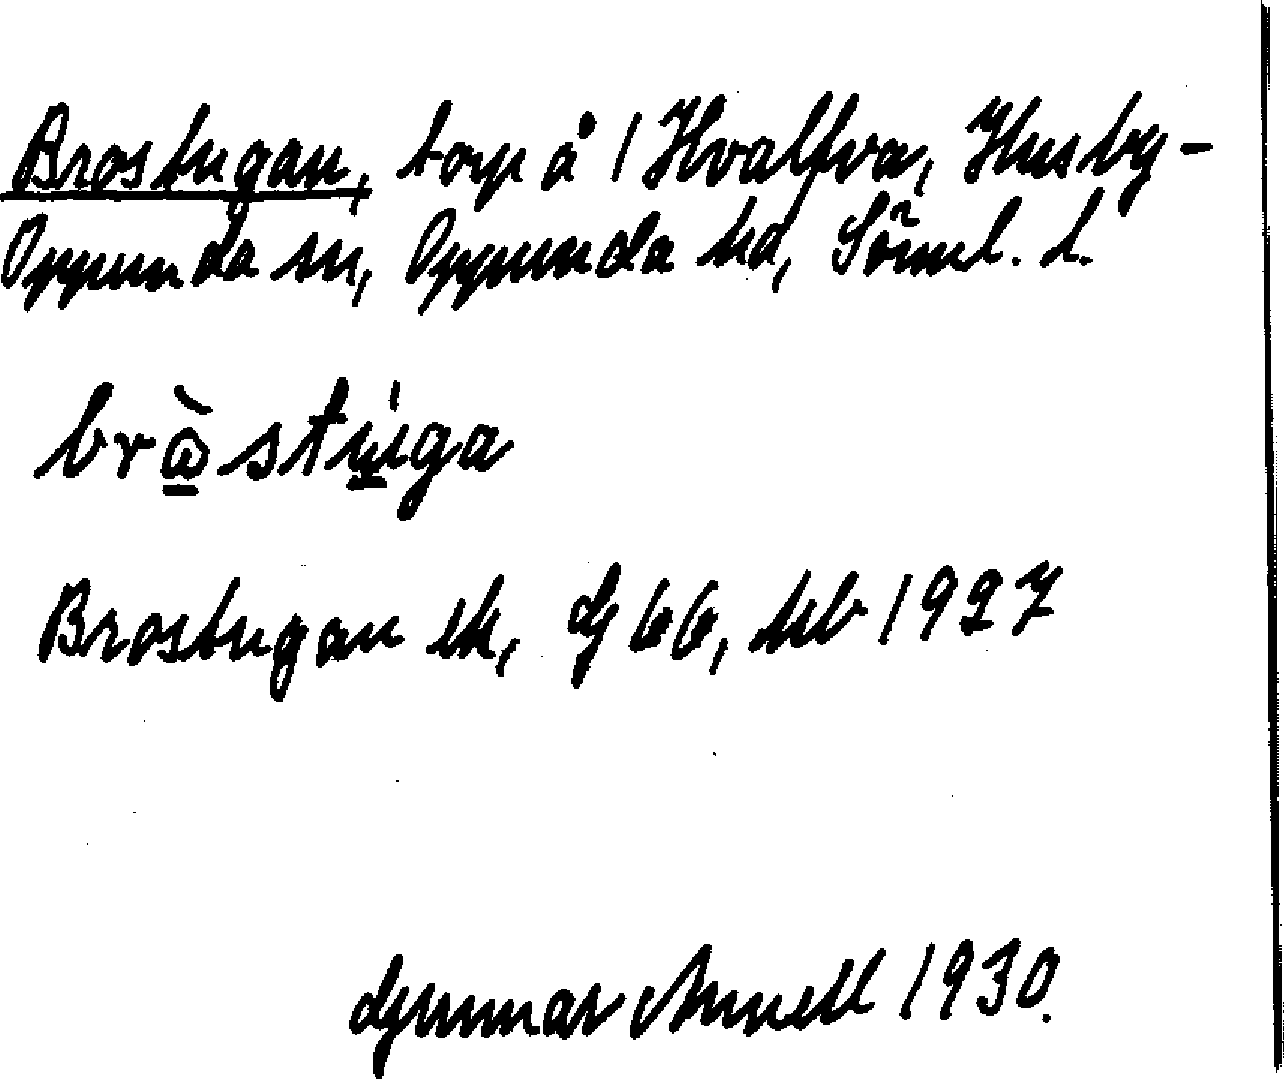 Brostugan, torp å 1 Hvalfva, Husby-
Oppunda sn, Oppunda hd, Söml. l.
brå̀stu̍ga
Brostugan ek, G 66, hb 1927
Gunnar Annell 1930.